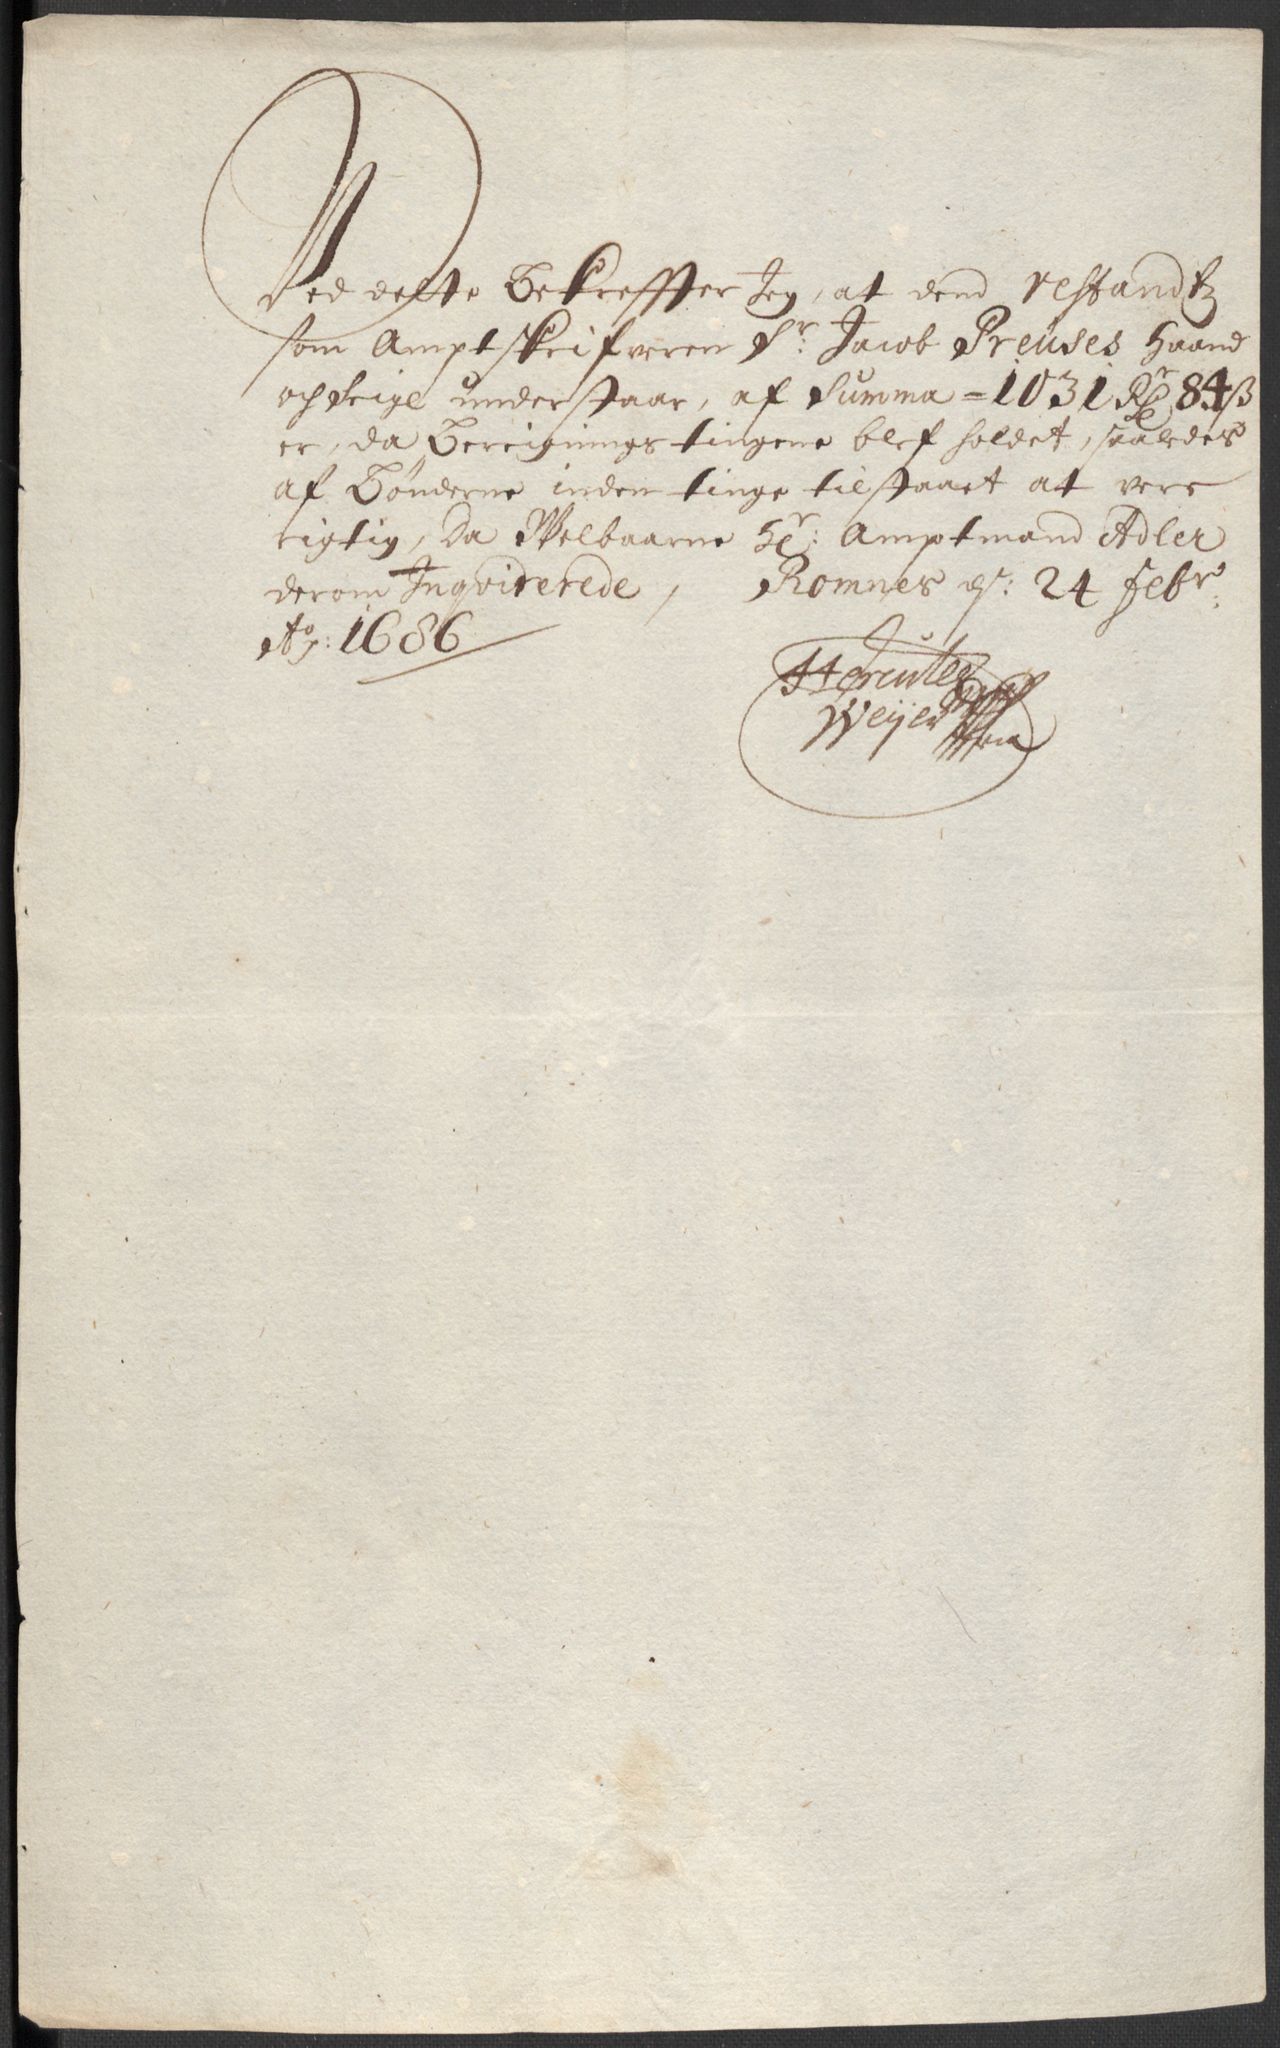 Ved dette Bekreffter Jeg, at dend restandtz
som Amptskrifveren Sr: Jacob Preuses Haand
och Seigl understaar, af Summa = 1031 Rdr 84 ß
er, da Bereignings tingene blef holdet, saaledes
af Bønderne inden tinge tilstaaet at vere
rigtig, Da Welbaarne Hr: Amptmand Adler
derom Inqvirerede, Romnes d: 24 Febr:
Ao: 1686
Hercules
Weyer